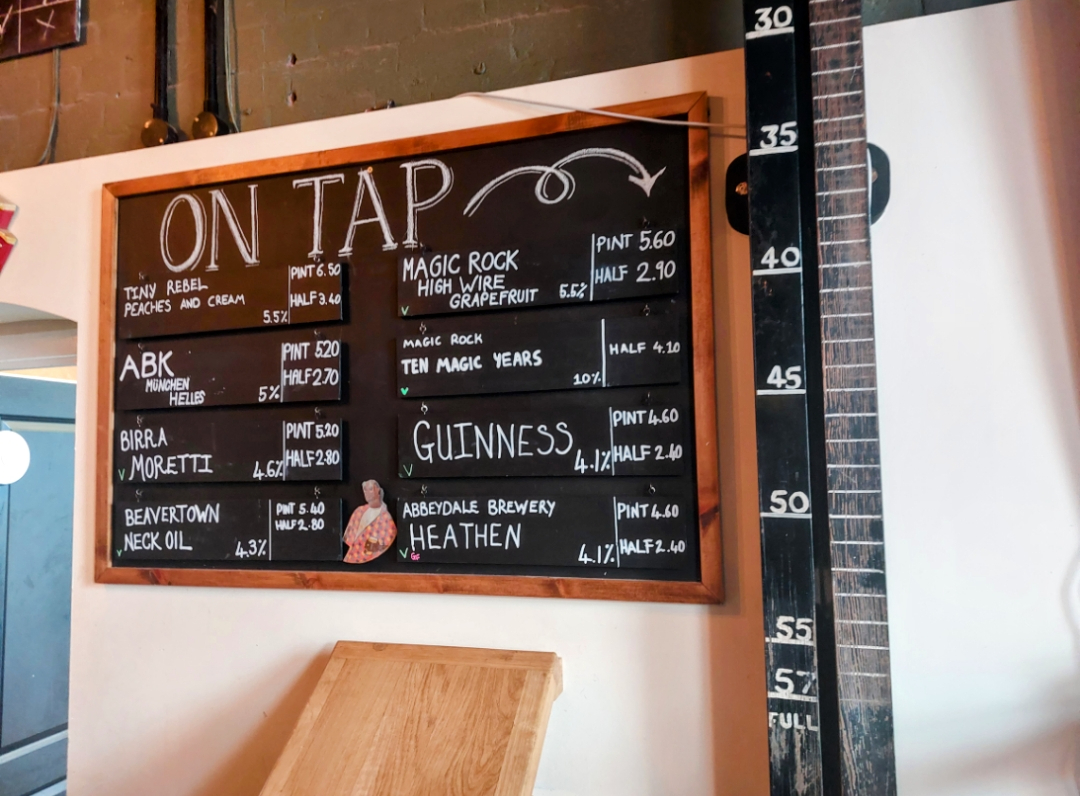 ON TAP
TINY REBEL
PEACHES AND CREAM
5.5%
PINT 6.50
HALF 3.40
ABK
MÜNCHEN
HELLES
5%
PINT 5.20
HALF 2.70
BIRRA
V MORETTI
4.6%
PINT 5.20
HALF 2.80
BEAVERTOWN
V NECK OIL
4.3%
PINT 5.40
HALF 2.80
MAGIC ROCK
HIGH WIRE
GRAPEFRUIT
V
5.5%
PINT 5.60
HALF 2.90
MAGIC ROCK
TEN MAGIC YEARS
10%
HALF 4.10
GUINNESS
V
4.1%
PINT 4.60
HALF 2.40
ABBEYDALE BREWERY
HEATHEN
V GF
4.1%
PINT 4.60
HALF 2.40
30
35
40
45
50
55
57
FULL